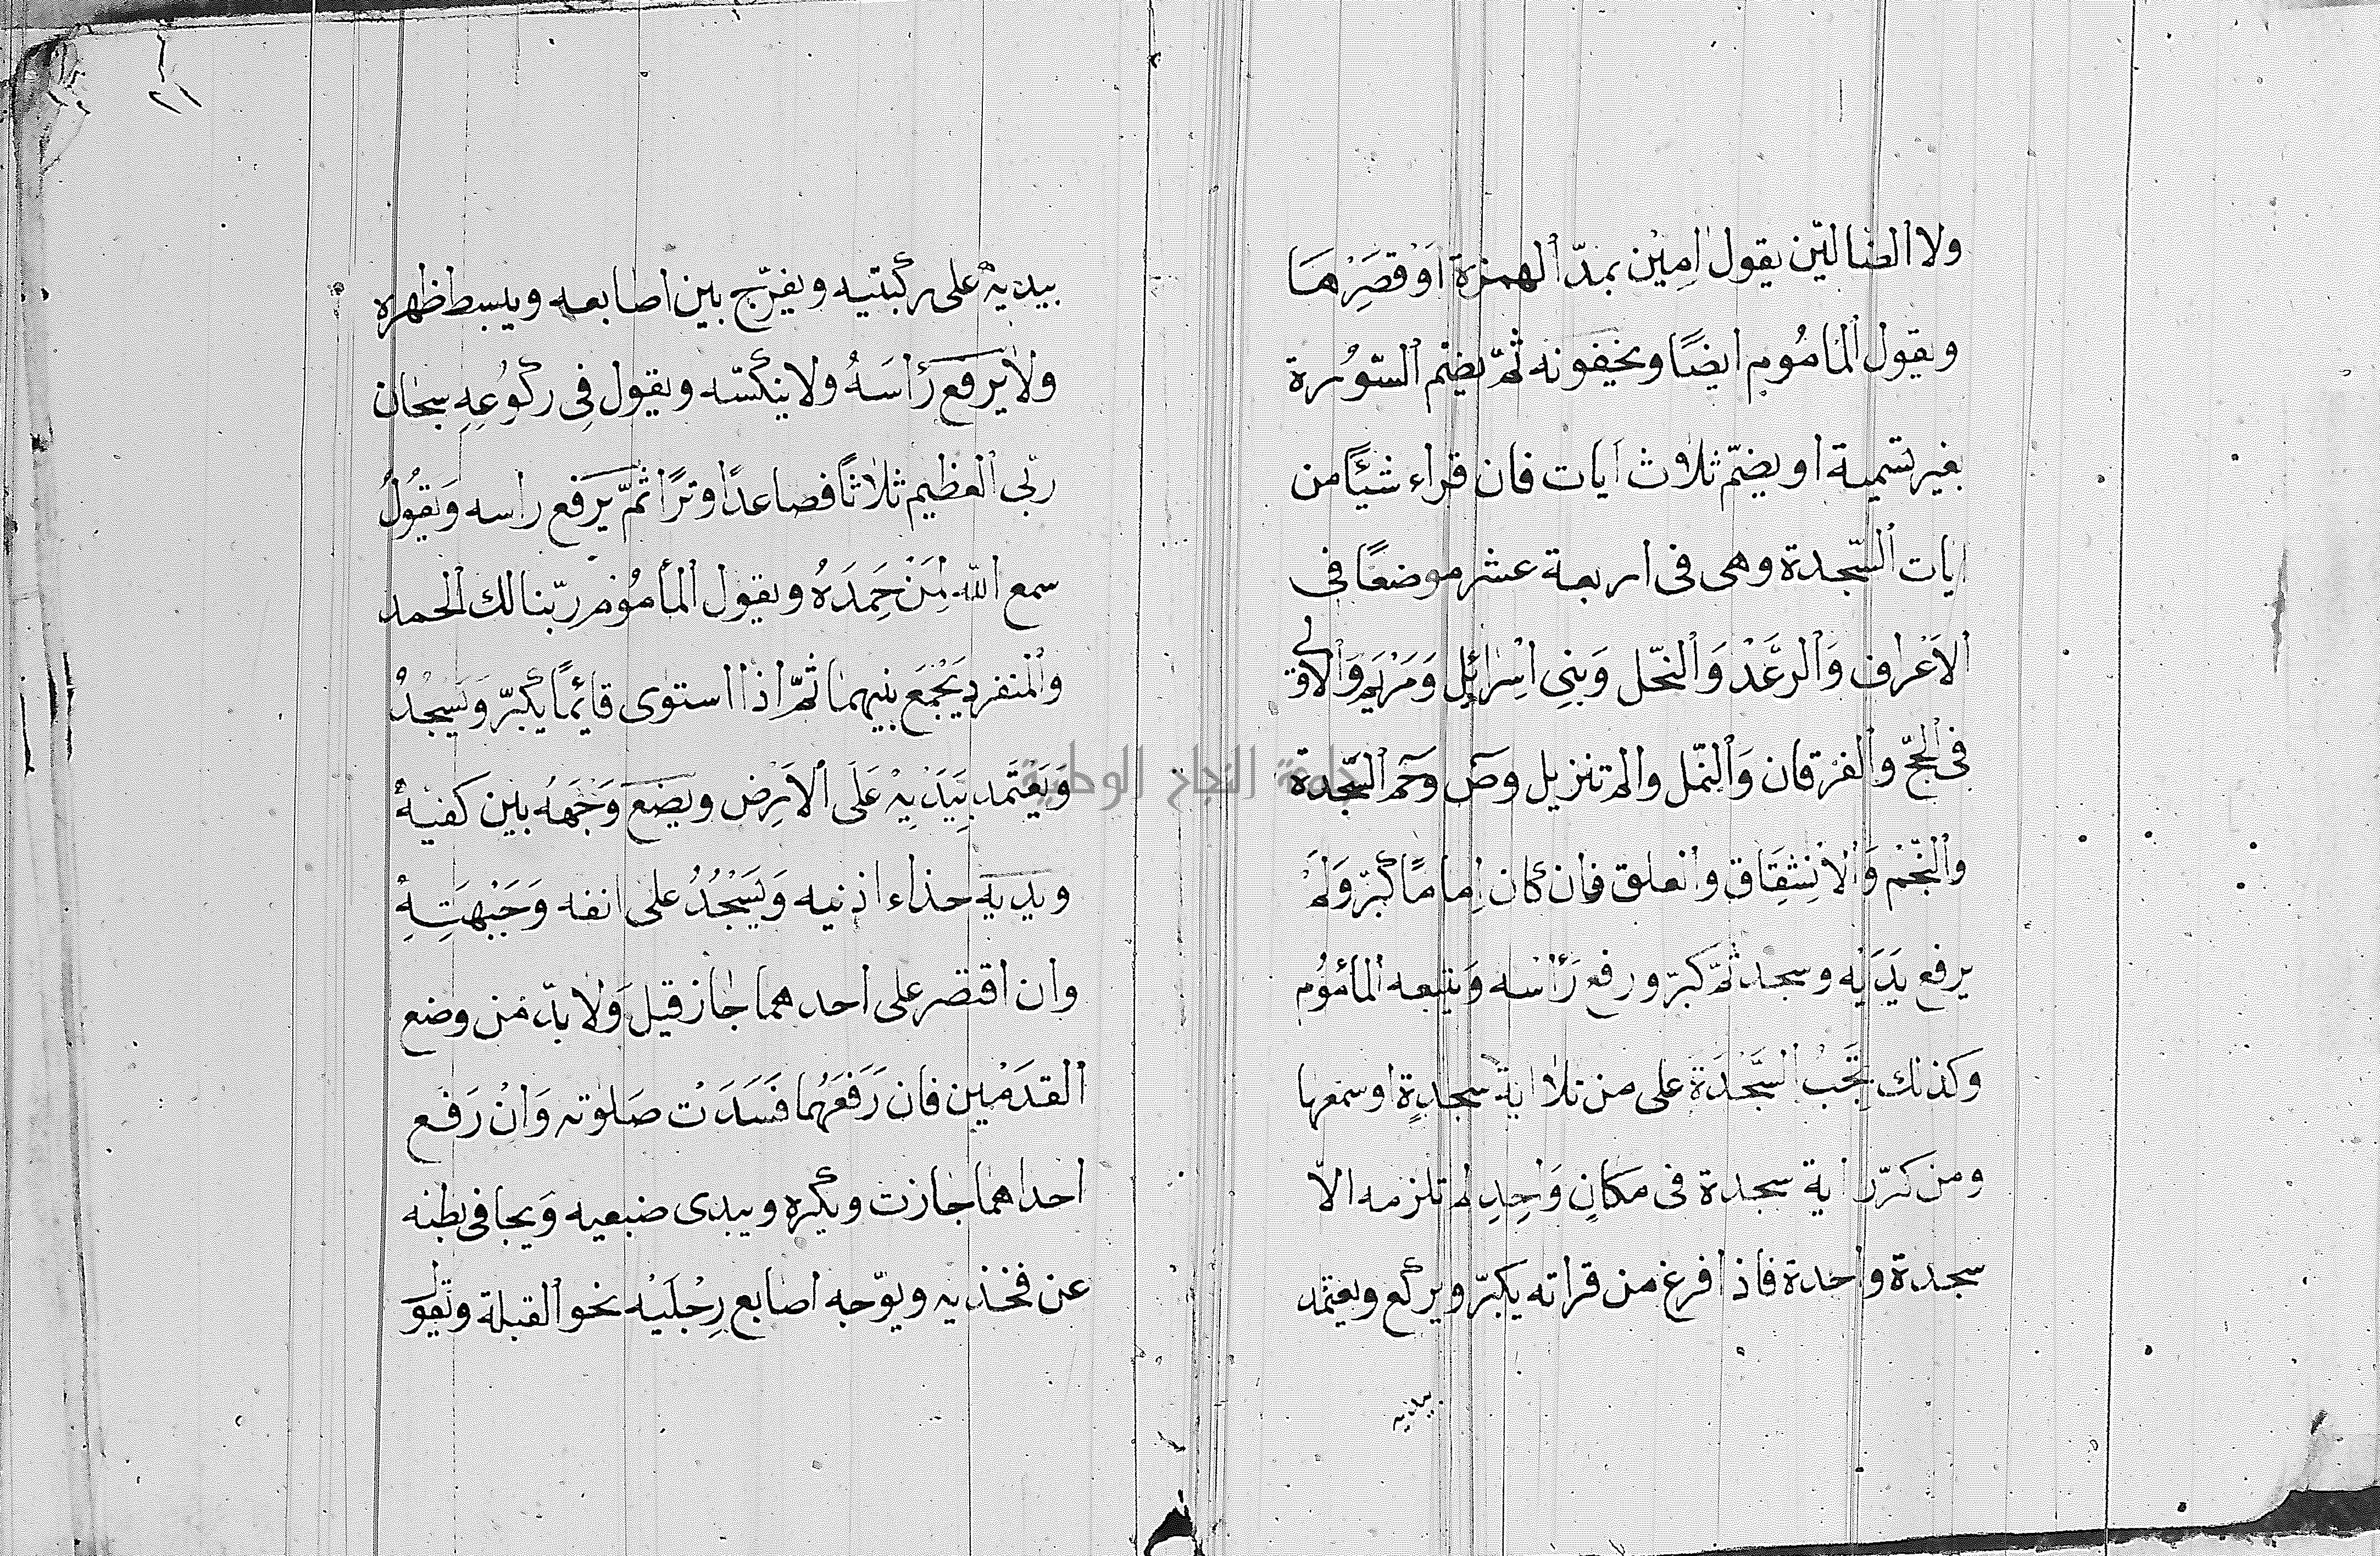 ولا الضالين يقول امِيْن بمدّ الهمزة اَوْ قصَرِهَا
ويقول المامُوم ايضًا ويخفونه ثمّ يضمّ السّوُرة
بغير تسمية او يضمّ ثلاث آيات فان قراء شيئًا من
ايات السّجدة وهى فى اربعة عشر موضعًا فى
الاَعْراف وَالرعَّدْ وَالنحّل وَبنِى اسْرائِل وَمَرْيَم وَالاوّلى
فى الحجّ والفرقان وَالنمّل والم تنزيل وصٓ وحٓم السّجدة
والنّجْم وَالانِشِقَاق والعلق فان كان اِمامًا كبرّ وَلَمْ
يرفع يَدَيْه وسجد ثمّ كبرّ ورفع رَأسه وَيتبعه المأمُوم
وكذلك تجَبُ السَّجْدَة على من تلا اية سجدةٍ او سمعها
ومن كرّر اية سجدة فى مكانٍ وَاحِدِ لم تلزمه الاّ
سجدة واحدة فاذا فرغ من قراته يكبرّ ويركع ويعتمد
بيديه
٢١
بيديهْ على ركبتيه ويفرّج بين اصابعه ويبسط ظهره
ولا يَرفع رَأسَهُ ولا ينكّسه ويقول فِى ركُوُعِهِ سبحان
ربّى العظيم ثلاثاً فصاعدًا وترًا ثمَّ يَرفع راسه وَيقُولُ
سمع الله لِمَنْ حَمِدَهُ ويقول المأمُوْم ربّنا لك الحمد
والمنفرد يَجْمَع بينهما ثمَّ اذا استوٰى قائمًا يكبرّ وَيَسْجُدُ
وَيَعْتَمد بِيَدَيْهِ عَلَى الاَرْضِ ويضَع وَجْهَهُ بين كفيْهْ
ويديه حذاء اذنيه وَيَسْجُدُ على انفه وَجَبْهَتِهِ
وان اقتصر على احدهما جاز قيل وَلا بدّ من وضع
القدَمْين فان رَفعَهُما فَسَدَتْ صَلوٰته وَانْ رَفع
احداهما جازت ويكره ويبدى ضبعيه وَيجافى بطنه
عن فخذيه ويوّجه اصابع رِجْلَيْه نحو القبلة ويقول
جامعة النجاح الوطنية